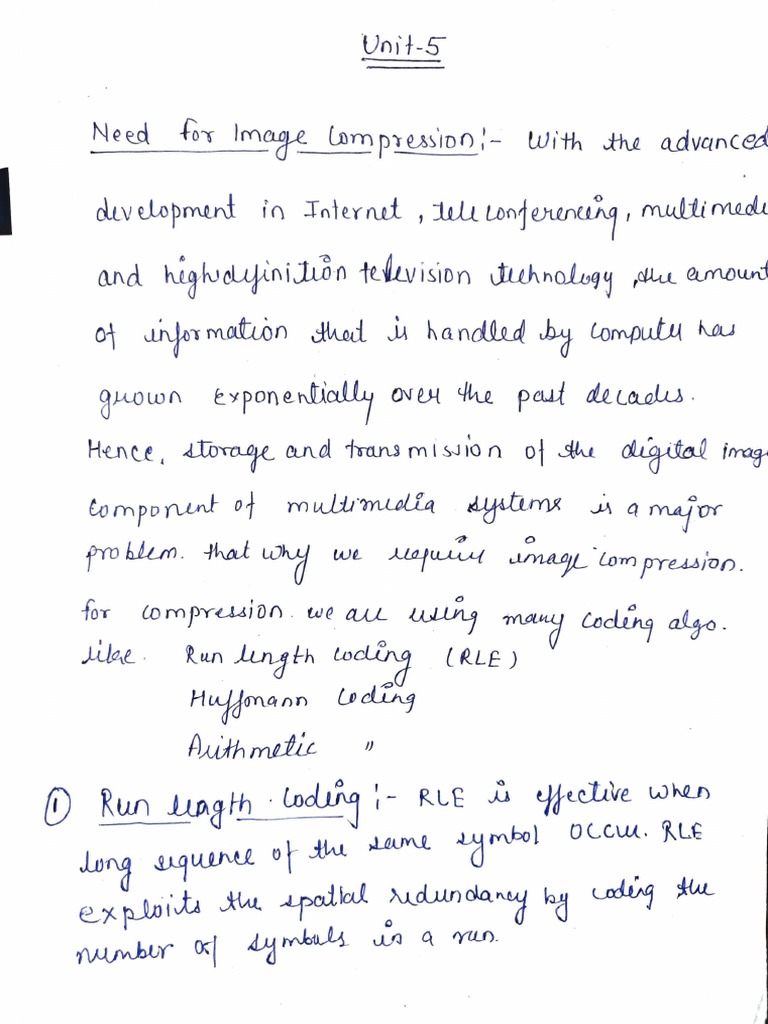 Unit-5
Need for Image Compression:- With the advanced
development in Internet, teleconferencing, multimedi
and highdefinition television technology, the amount
of information that is handled by computer has
grown exponentially over the past decades.
Hence, storage and transmission of the digital imag
component of multimedia systems is a major
problem. that why we require image compression.
for compression we are using many coding algo.
like. Run length coding (RLE)
Huffmann Coding
Arithmetic "
① Run length Coding:- RLE is effective when
long sequence of the same symbol occur. RLE
exploits the spatial redundancy by coding the
number of symbols in a run.